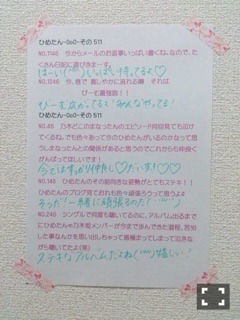 ひめたん-OoO-その511
NO.1146 今からメールのお返事いっぱい書くね。なので、たくさん日記に遊びきます。
はーい(^^)いっぱい待ってるよ♡
NO.1046 今、巷で 麗しやかに流れる噂 それは
びーむ最強説!!
びーむ広がってる! みんなやってる!
ひめたん-OoO-その511
NO.45 乃木どこのまなったんのエピソード何回見ても泣けてくるね。でも色々あって今のひめたんがいるのかなって思うしまなったんとの関係があると思うのでこれからも仲良くがんばってほしいです!
今ではすっかり仲良し♡だいすき♡
NO.146 ひめたんのその前向きな姿勢がとてもステキ!!
ひめたんのブログ見ておれも色々頑張ろうって思うよ♪
そうだ!一緒に頑張るのだ!
NO.246 シングルで何度も聴いてるのに、アルバム出るまでにひめたんや乃木坂メンバーが今まで歩んできた道程、苦労した事なんかを思い出しちゃって感極まってしまって泣きながら聴いてたよ(笑)
ステキなアルバムだよね(^^)嬉しい!